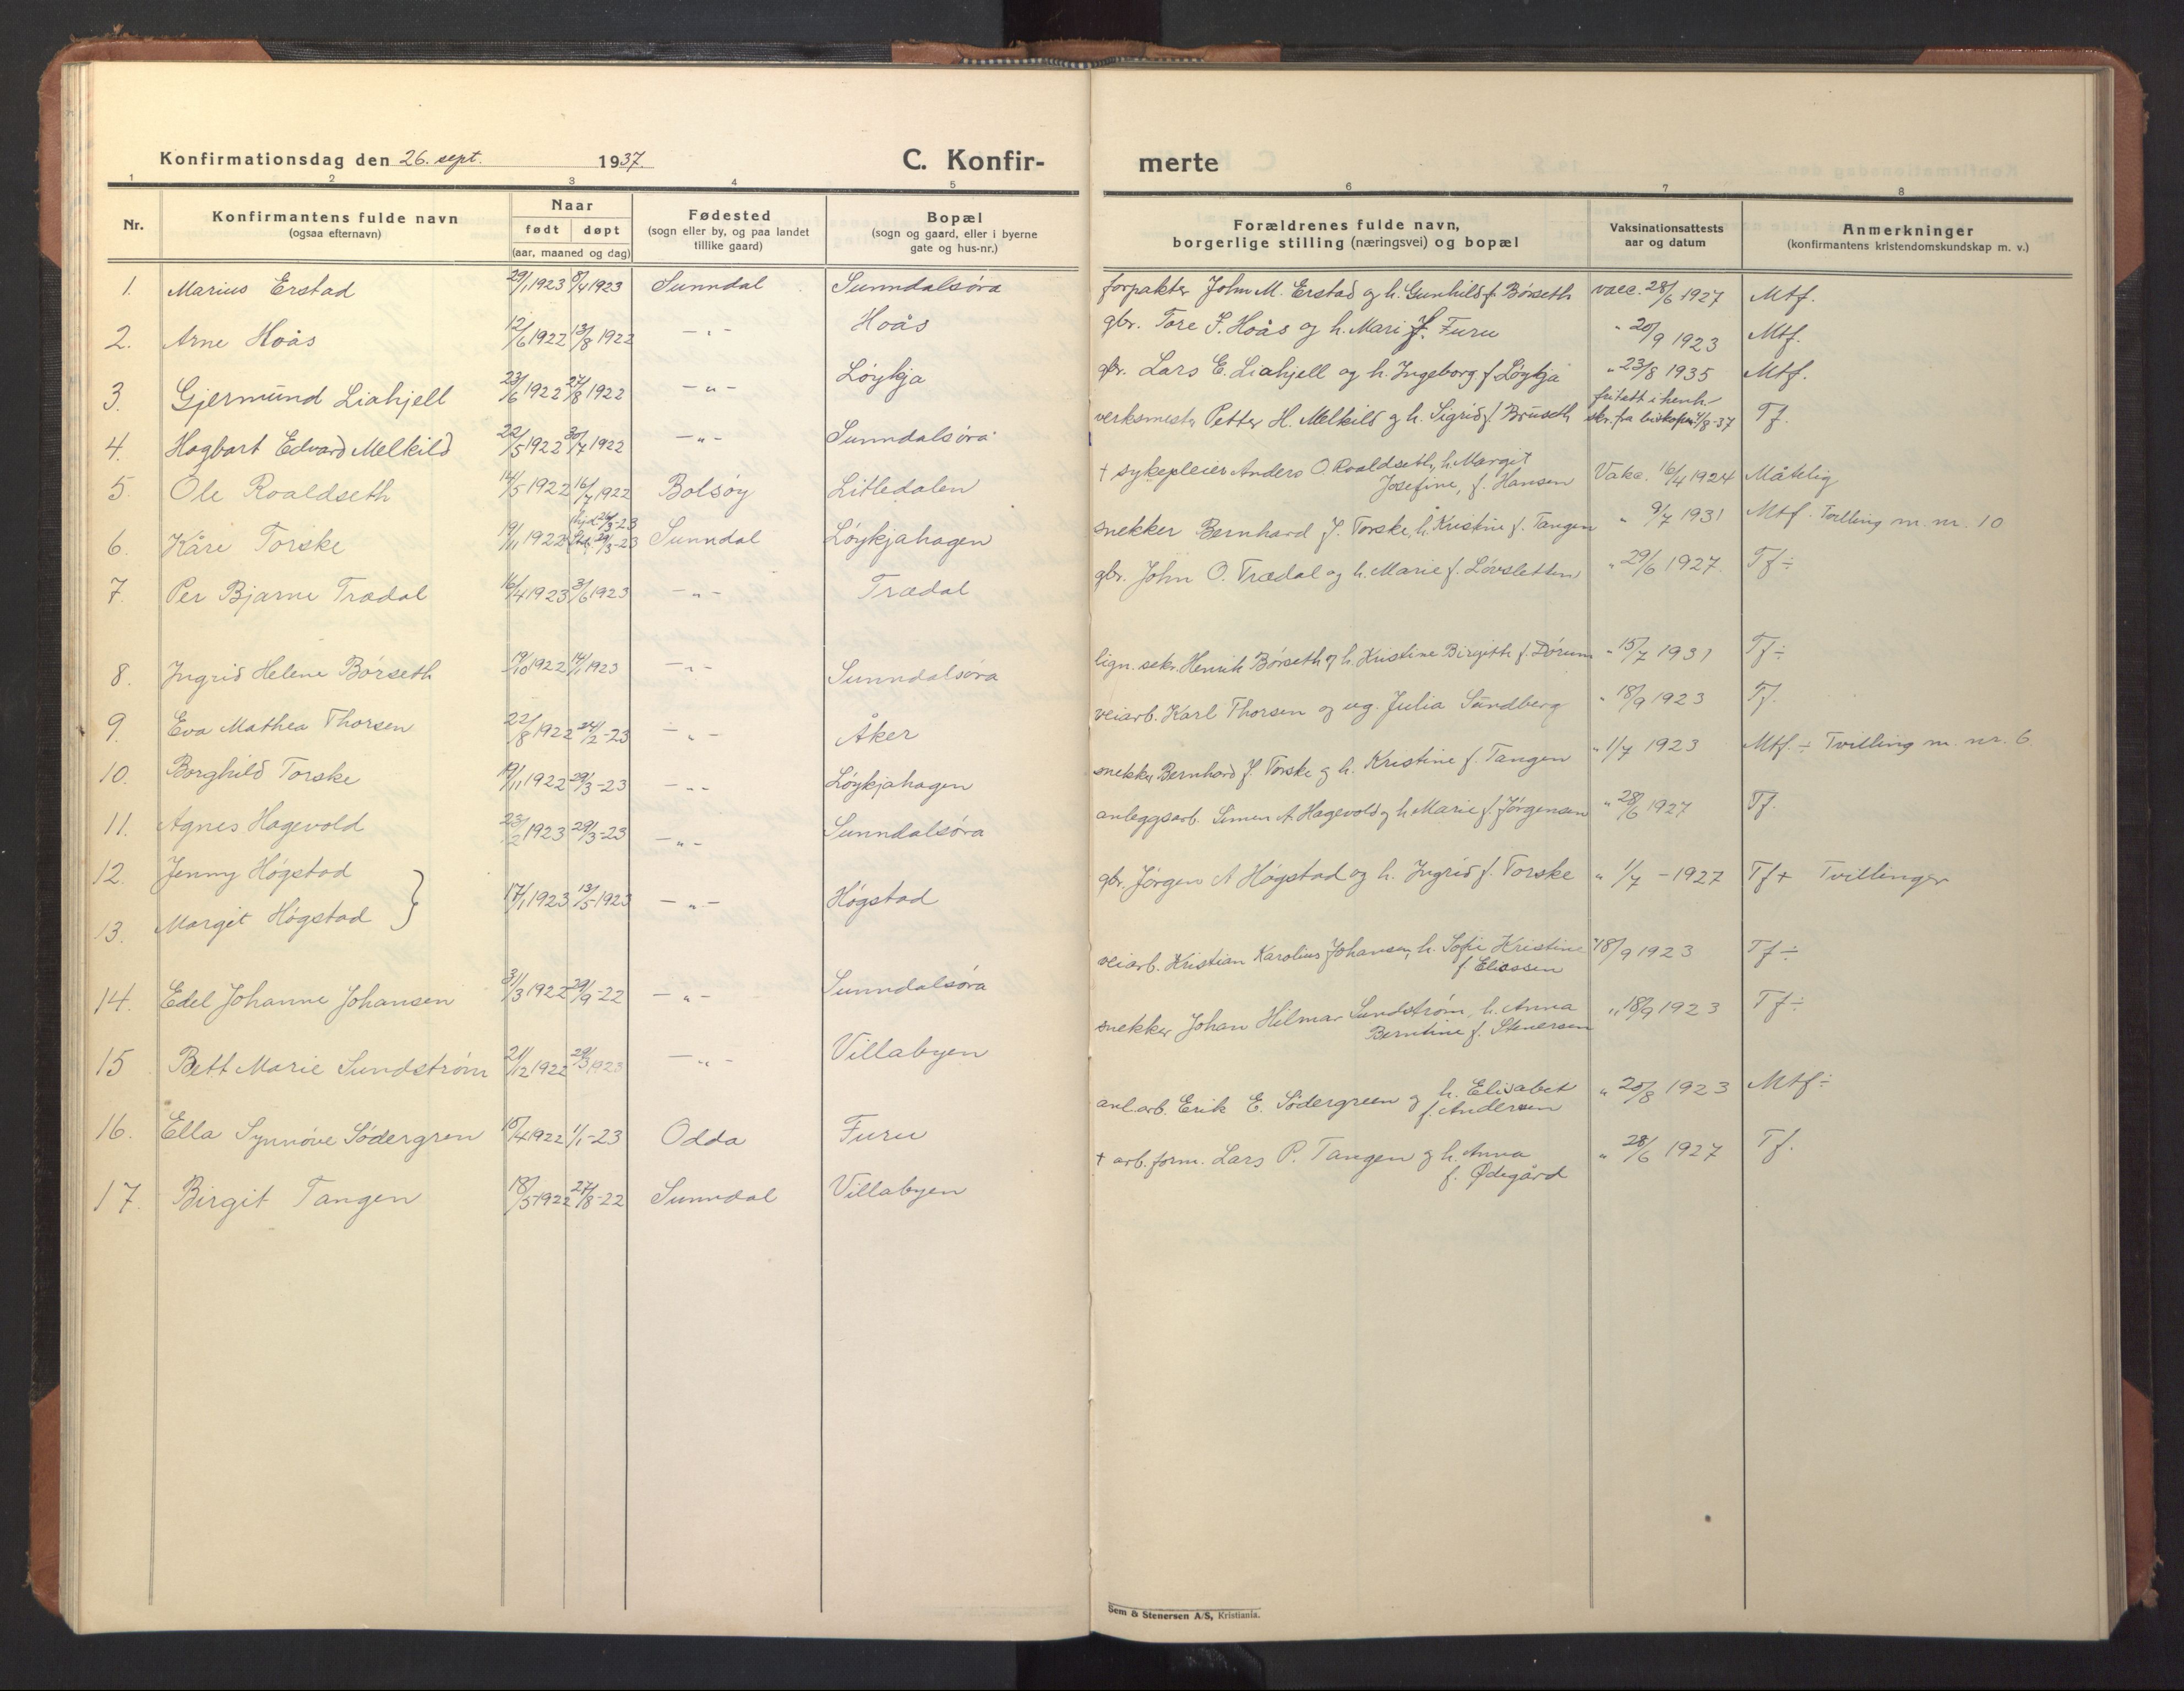 Konfirmationsdag den 26. sept. 1937. C. Konfir-
merte
1 2 3 4 5
6 7 8
Nr.
Konfirmantens fulde navn
(ogsaa efternavn)
Naar
født døpt
(aar, maaned og dag)
Fødested
(sogn eller by, og paa landet
tillike gaard)
Bopæl
(sogn og gaard, eller i byerne
gate og hus-nr.)
Forældrenes fulde navn,
borgerlige stilling (næringsvei) og bopæl
Vaksinationsattests
aar og datum
Anmerkninger
(konfirmantens kristendomskundskap m. v.)
1. Marius Erstad 29/1 1923 8/4 1923 Sunndal Sunndalsøra forpakter John M. Erstad og h. Gunhild f. Børseth vacc. 28/6 1927 Mtf.
2. Arne Hoås 12/6 1922 13/8 1922 - " - Hoås gbr. Tore S. Hoås og h. Mari f. Furu " 20/9 1923 Mtf.
3. Gjermund Liahjell 23/6 1922 27/8 1922 - " - Løykja gbr. Lars E. Liahjell og h. Ingeborg f. Løykja " 23/8 1935 Mtf.
4. Hagbart Edvard Melkild 22/5 1922 30/7 1922 - " - Sunndalsøra verksmester Petter H. Melkild og h. Sigrid f. Bruseth fritatt i henh.
skr. fra biskopen 11/8-37 Tf.
5. Ole Roaldseth 14/5 1922 16/7 1922 Bolsøy Litledalen † sykepleier Anders O. Roaldseth, h. Margit
Josefine, f. Hansen Vakc. 16/4 1924 Måtelig
6. Kåre Torske 19/11 1922 hjd 26/3-23
29/3-23 Sunndal Løykjahagen snekker Bernhard J. Torske, h. Kristine f. Tangen " 9/7 1931 Mtf. Tvilling m. nr. 10
7. Per Bjarne Trædal 16/4 1923 3/6 1923 - " - Trædal gbr. John O. Trædal og h. Marie f. Løvsletten " 29/6 1927. Tf÷
8. Ingrid Helene Børseth 19/10 1922 14/1 1923 - " - Sunndalsøra lign. sekr. Henrik Børseth og h. Kristine Birgitte f. Dørum " 15/7 1931 Tf÷
9. Eva Mathea Thorsen 22/8 1922 24/2-23 - " - Åker veiarb. Karl Thorsen og ug. Julia Sundberg " 18/9 1923 Tf.
10. Borghild Torske 19/11 1922 29/3-23 - " - Løykjahagen snekker Bernhard J. Torske og h. Kristine f. Tangen " 1/7 1923 Mtf.÷ Tvilling m. nr. 6
11. Agnes Hagevold 23/2 1923 29/3-23 - " - Sunndalsøra anleggsarb. Simen A. Hagevold og h. Marie f. Jørgensen " 28/6 1927 Tf.
12. Jenny Høgstad
13. Margit Høgstad } 17/1 1923 13/5 1923 - " - Høgstad gbr. Jørgen A Høgstad og h. Ingrid f. Torske " 1/7 - 1927 Tf+ Tvillinger
14. Edel Johanne Johansen 31/3 1922 29/9-22 - " - Sunndalsøra veiarb. Kristian Karolius Johansen, h. Sofie Kristine
f. Eliassen " 18/9 1923 Tf÷
15 Bett Marie Sundstrøm 21/12 1922 29/3 1923 - " - Villabyen snekker Johan Hilmar Sundstrøm, h. Anna
Berntine f. Stenersen " 18/9 1923 Tf÷
16. Ella Synnøve Södergren 15/4 1922 1/1-23 Odda Furu anl.arb. Erik E. Södergreen og h. Elisabet
f. Andersen " 20/8 1923 Mtf÷
17. Birgit Tangen 18/5 1922 27/8-22 Sunndal Villabyen † arb. form. Lars P. Tangen og h. Anna
f. Ødegård " 28/6 1927 Tf.
Sem & Stenersen A/S, Kristiania.